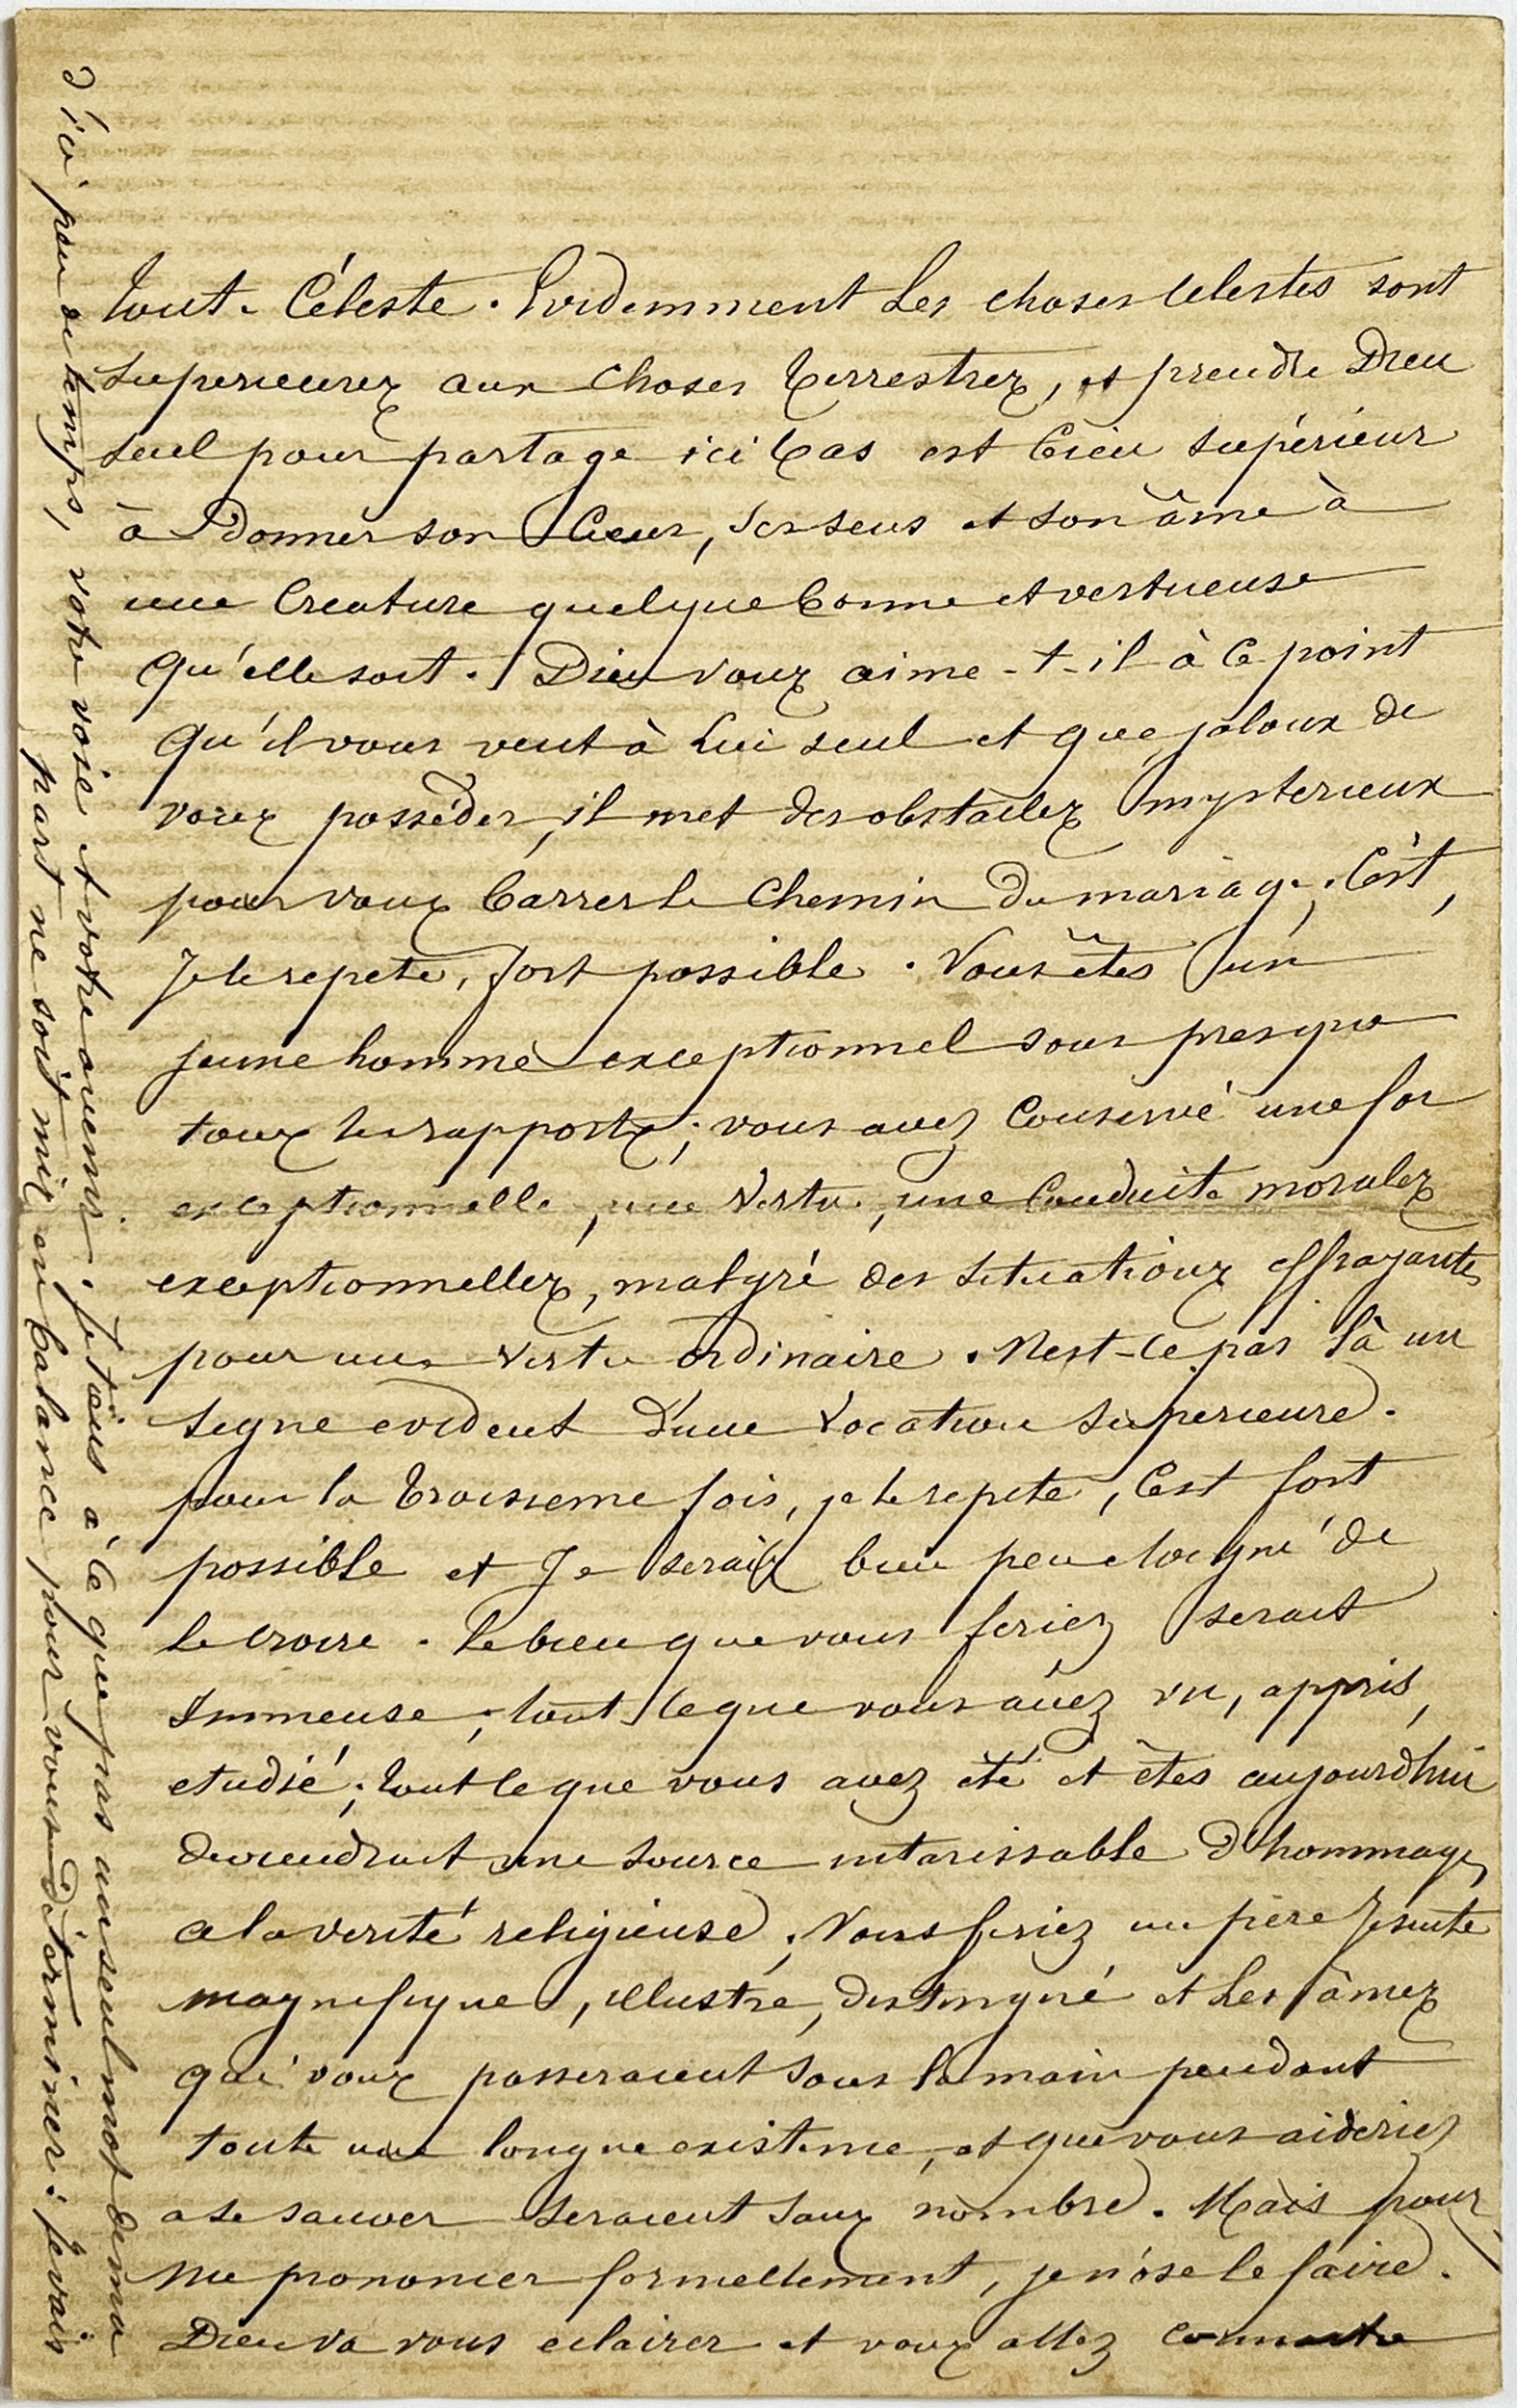 tout-Céleste. Evidemment les choses celestes sont
superieures aux choses terrestres, et prendre Dieu
seul pour partage ici bas est bien supérieur
à donner son Cœur, ses sens et son âme à
une Creature quelque bonne et vertueuse
qu'elle soit. Dieu vous aime-t-il à ce point
qu'il vous veut à Lui seul et que, jaloux de
vous posséder, il met des obstacles mysterieux
pour vous barrer le chemin du mariage; C'est,
je le repete, fort possible. Vous êtes un
jeune homme exceptionnel sous presque
tous les rapports; vous avez conservé une foi
exceptionnelle, une vertu, une conduite morales
exceptionnelles, malgré des situations effrayantes
pour une vertu ordinaire. N'est-ce pas là un
signe evident d'une vocation superieure.
pour la troisieme fois, je le repete, C'est fort
possible et Je serais bien peu eloigné de
le croire. le bien que vous feriez serait
Immense; tout ce que vous avez vu, appris,
etudié; tout ce que vous avez été et êtes aujourd'hui
deviendrait une source intarissable d'hommages
a la verité religieuse; Vous feriez un père Jesuite
magnifique, illustre, distingué et les âmes
qui vous passeraient sous la main pendant
toute une longue existence, et que vous aideriez
a se sauver seraient sans nombre. Mais pour
me prononcer formellement, je n'ose le faire.
Dieu va vous eclairer et vous allez connaitre
d'ici peu de temps, votre voie et votre avenir; je tiens à ce que pas un seul mot de ma
part ne soit mis en balance pour vous déterminer: je vais